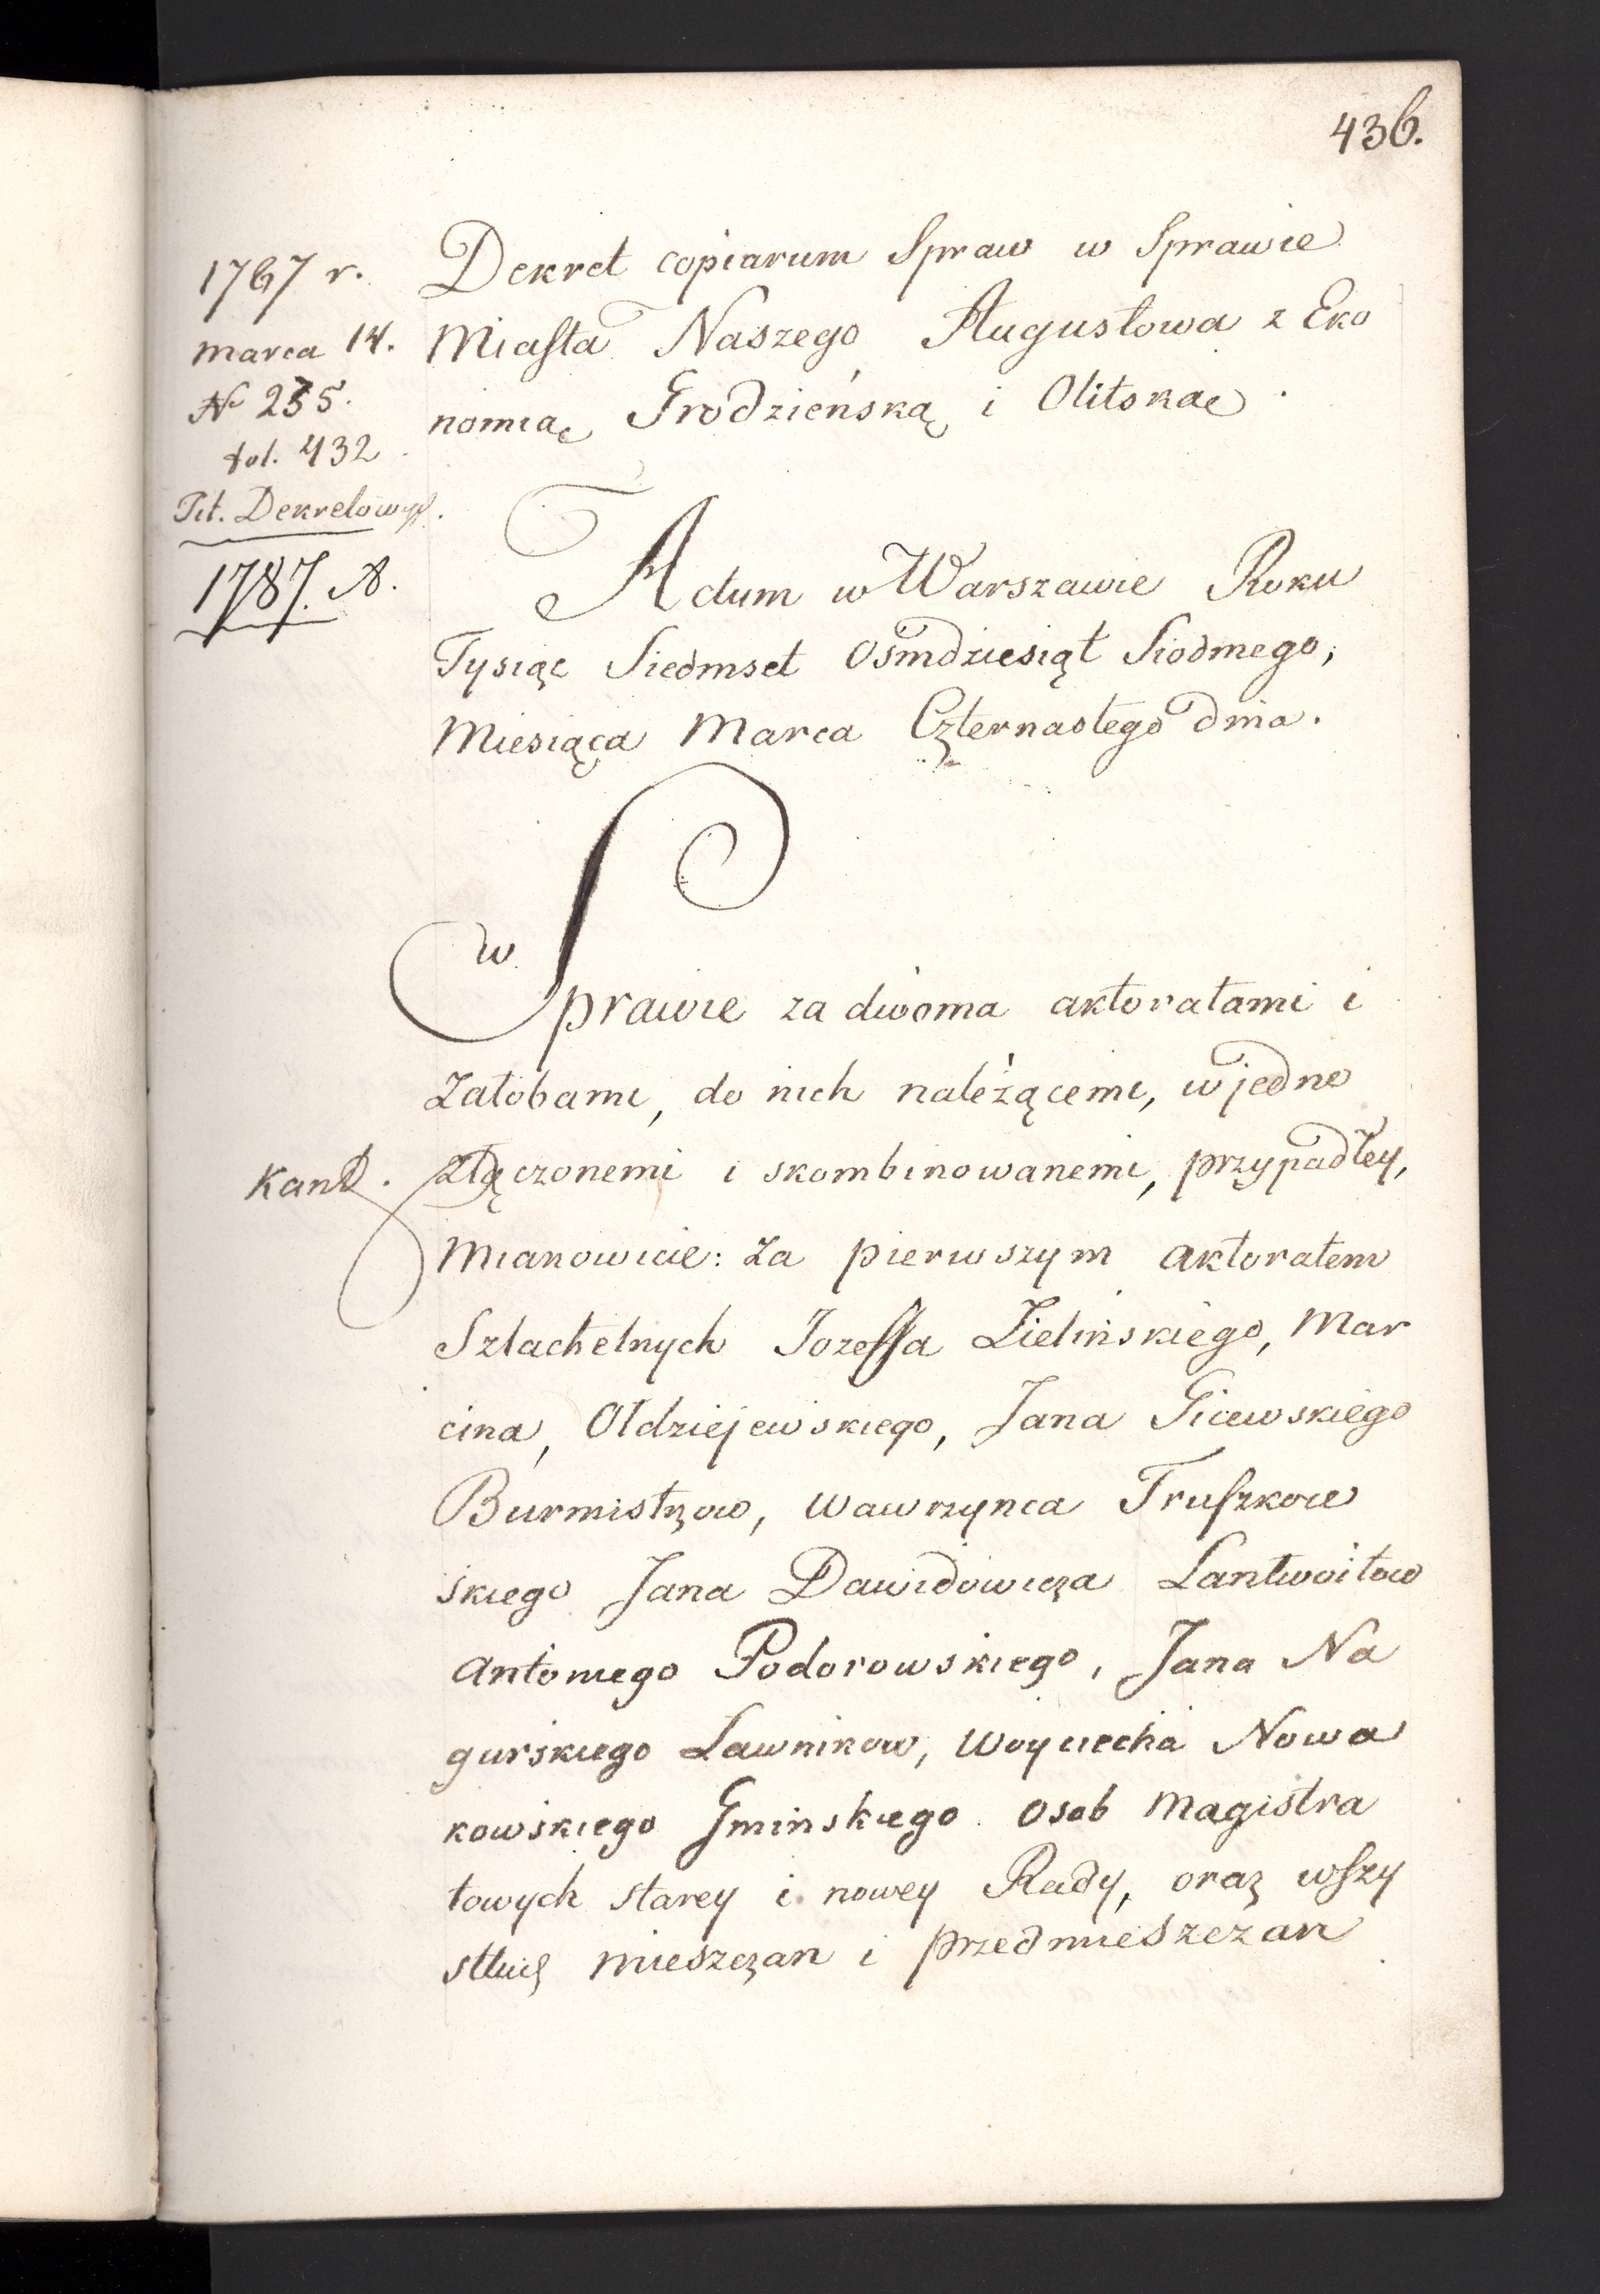 436.
1767 r.
marca 14.
N 235.
fol. 432
Tit. Dekretowy.
1787. A.
Dekret copiarum Spraw w Sprawie
Miasta Naszego Augustowa z Eko
nomią Grodzieńską i Olitską.
Actum w Warszawie Roku
Tysiąc Siedmset Osmdziesiąt Siodmego,
Miesiąca Marca Czternastego dnia.
w Sprawie za dwoma aktoratami i
Załobami, do nich należącemi, w jedno
Kant. złączonemi i skombinowanemi, przypadłey,
Mianowicie: Za pierwszym aktoratem
Szlachetnych Jozeffa Zielińskiego, Mar
cina, Oldziejewskiego, Jana Gicewskiego
Burmistrzow, Wawrzynca Truszkow
skiego Jana Dawidowicza Lantwoitow
Antoniego Podorowskiego, Jana Na
gurskiego Ławnikow, Woyciecha Nowa
kowskiego Gminskiego Osob Magistra
towych starey i nowey Rady, oraz wszy
stkich mieszczan i przedmieszczan